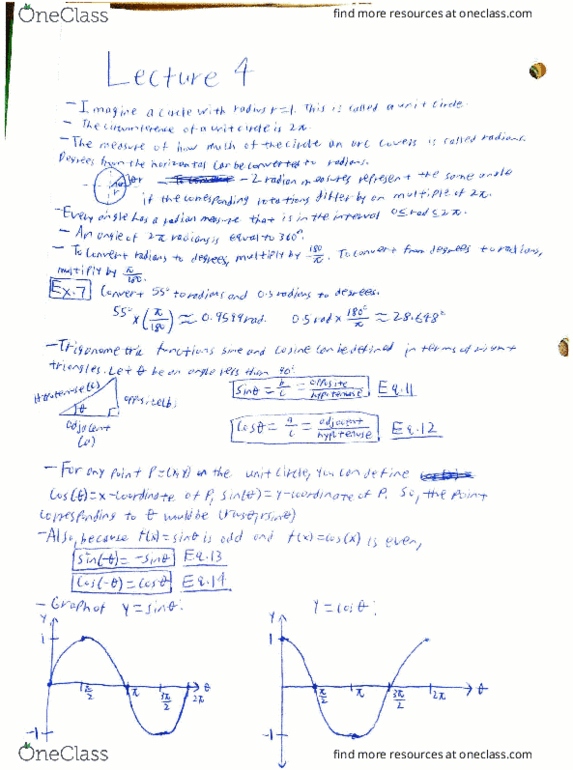 OneClass
find more resources at oneclass.com
Lecture 4
- Imagine a circle with radius r=1. This is called a unit circle.
- The circumference of a unit circle is 2π.
- The measure of how much of the circle an arc covers is called radians.
Degrees from the horizontal can be converted to radians.
- 2 radian measures represent the same angle
if the corresponding rotations differ by an multiple of 2π.
- Every angle has a radian measure that is in the interval 0≤rad≤2π.
- An angle of 2π radians is equal to 360°.
- To convert radians to degrees, multiply by 180/π. To convert from degrees to radians,
multiply by π/180.
Ex.7 Convert 55° to radians and 0.5 radians to degrees.
55° × (π/180) ≈ 0.9599 rad. 0.5 rad × 180°/π ≈ 28.648°
- Trigonometric functions sine and cosine can be defined in terms of right
triangles. Let θ be an angle less than 90°.
Hypotenuse (c) θ opposite (b) sinθ = b/c = opposite/hypotenuse Eq.11
adjacent (a) cosθ = a/c = adjacent/hypotenuse Eq.12
- For any point P=(x,y) on the unit circle, you can define
cos(θ)=x-coordinate of P, sin(θ)=y-coordinate of P. So, the point
corresponding to θ would be (rcosθ, rsinθ)
- Also, because f(x)=sinθ is odd and f(x)=cos(x) is even,
sin(-θ)=-sinθ Eq.13
cos(-θ)=cosθ Eq.14
- Graph of y=sinθ: y=cosθ:
y 1 -1 π/2 π 3π/2 2π θ
y 1 -1 π/2 π 3π/2 2π θ
OneClass
find more resources at oneclass.com